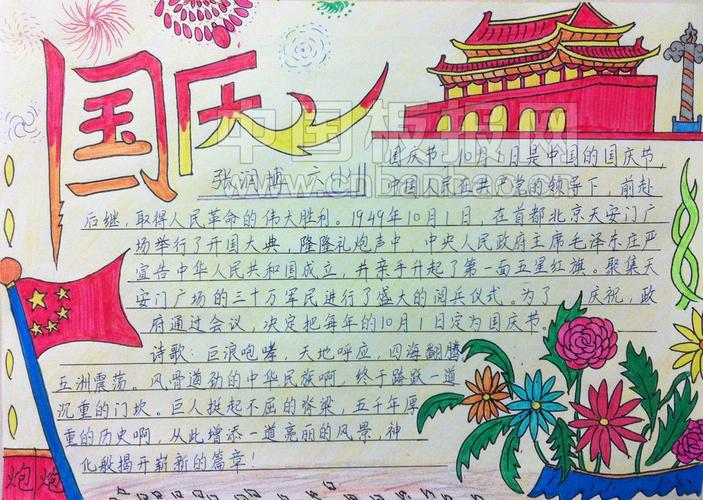 国庆
中国板报网
张润博 六
国庆节：10月1日是中国的国庆节，
中国人民在共产党的领导下，前赴
后继，取得人民革命的伟大胜利。1949年10月1日，在首都北京天安门广
场举行了开国大典，隆隆礼炮声中，中央人民政府主席毛泽东庄严
宣告中华人民共和国成立，并亲手升起了第一面五星红旗。聚集天
安门广场的三十万军民进行了盛大的阅兵仪式。为了 庆祝，政
府通过会议，决定把每年的10月1日定为国庆节。
诗歌：巨浪咆哮，天地呼应，四海翻腾
五洲震荡。风骨遒劲的中华民族啊，终于跨跃一道
沉重的门坎。巨人挺起不屈的脊梁，五千年厚
重的历史啊，从此增添一道亮丽的风景，神
化般揭开崭新的篇章！
炮 炮